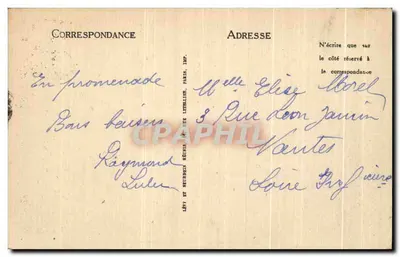 CORRESPONDANCE
ADRESSE
N'écrire que sur
le côté réservé à
la correspondance
En promenade
Bons baisers
Raymond
Lulu
LÉVY ET NEURDEIN RÉUNIS
PARIS, IMP.
CPARHIL
Melle Elise Morel
3 Rue Léon Jamin
Nantes
Loire Inf